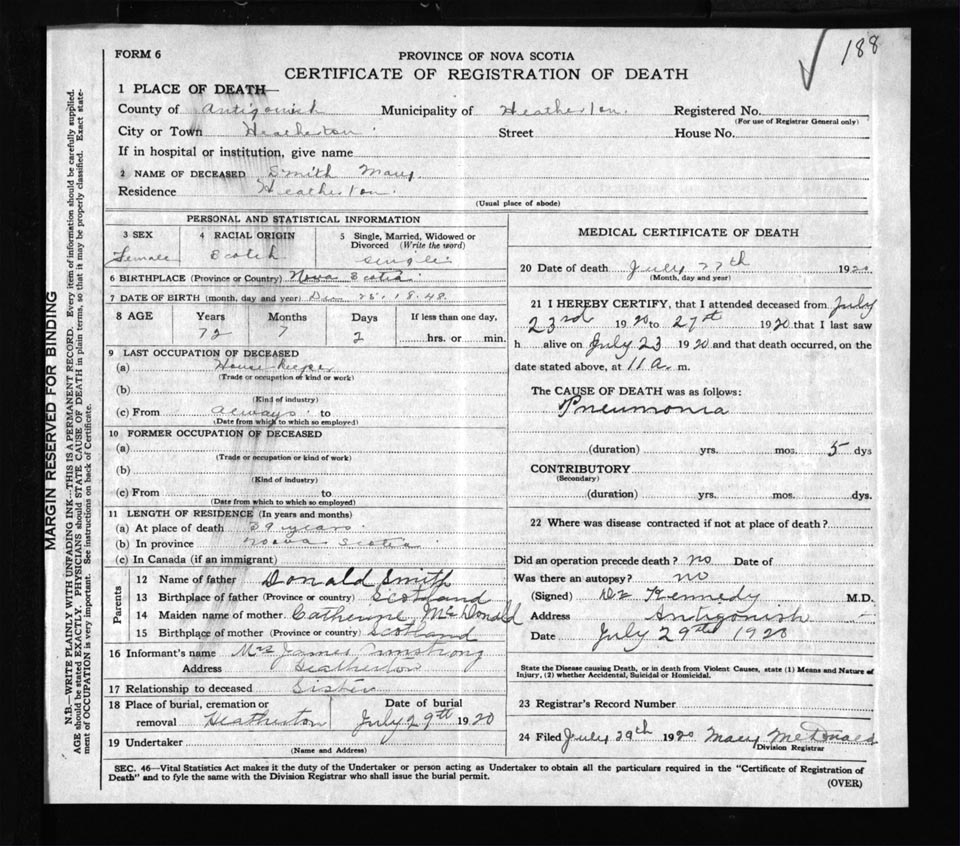 188
FORM 6
PROVINCE OF NOVA SCOTIA
CERTIFICATE OF REGISTRATION OF DEATH
1 PLACE OF DEATH—
County of Antigonish Municipality of Heatherton. Registered No.
(For use of Registrar General only)
City or Town Heatherton. Street House No.
If in hospital or institution, give name
2 NAME OF DECEASED Smith Mary.
Residence Heatherton.
(Usual place of abode)
PERSONAL AND STATISTICAL INFORMATION
3 SEX 4 RACIAL ORIGIN 5 Single, Married, Widowed or Divorced (Write the word)
Female Scotch single.
6 BIRTHPLACE (Province or Country) Nova Scotia.
7 DATE OF BIRTH (month, day and year) 25. 1848.
8 AGE Years Months Days If less than one day,
72 7 2 hrs. or min.
9 LAST OCCUPATION OF DECEASED
(a) House Keeper
(Trade or occupation or kind or work)
(b)
(Kind of industry)
(c) From always. to
(Date from which to which so employed)
10 FORMER OCCUPATION OF DECEASED
(a)
(Trade or occupation or kind of work)
(b)
(Kind of industry)
(c) From to
(Date from which to which so employed)
11 LENGTH OF RESIDENCE (In years and months)
(a) At place of death 39 years.
(b) In province Nova Scotia.
(c) In Canada (if an immigrant)
Parents
12 Name of father Donald Smith
13 Birthplace of father (Province or country) Scotland
14 Maiden name of mother Catherine McDonald
15 Birthplace of mother (Province or country) Scotland
16 Informant's name Mrs James Armstrong
Address Heatherton
17 Relationship to deceased Sister
18 Place of burial, cremation or Date of burial
removal Heatherton July 29th 1920
19 Undertaker
(Name and Address)
MEDICAL CERTIFICATE OF DEATH
20 Date of death July 27th 1920
(Month, day and year)
21 I HEREBY CERTIFY, that I attended deceased from July
23rd 1920 to 27th 1920 that I last saw
h alive on July 23 1920 and that death occurred, on the
date stated above, at 11 a. m.
The CAUSE OF DEATH was as follows:
Pneumonia
(duration) yrs. mos. 5 dys
CONTRIBUTORY
(Secondary)
(duration) yrs. mos. dys.
22 Where was disease contracted if not at place of death?
Did an operation precede death? no Date of
Was there an autopsy? no
(Signed) Dr Kennedy M.D.
Address Antigonish
Date July 29th 1920
State the Disease causing Death, or in death from Violent Causes, state (1) Means and Nature of
Injury, (2) whether Accidental, Suicidal or Homicidal.
23 Registrar's Record Number
24 Filed July 29th 1920 Mary McDonald
Division Registrar
SEC. 46—Vital Statistics Act makes it the duty of the Undertaker or person acting as Undertaker to obtain all the particulars required in the "Certificate of Registration of
Death" and to fyle the same with the Division Registrar who shall issue the burial permit.
(OVER)
MARGIN RESERVED FOR BINDING
N.B.—WRITE PLAINLY WITH UNFADING INK—THIS IS A PERMANENT RECORD. Every item of information should be carefully supplied.
AGE should be stated EXACTLY. PHYSICIANS should STATE CAUSE OF DEATH in plain terms, so that it may be properly classified. Exact state-
ment of OCCUPATION is very important. See instructions on back of Certificate.